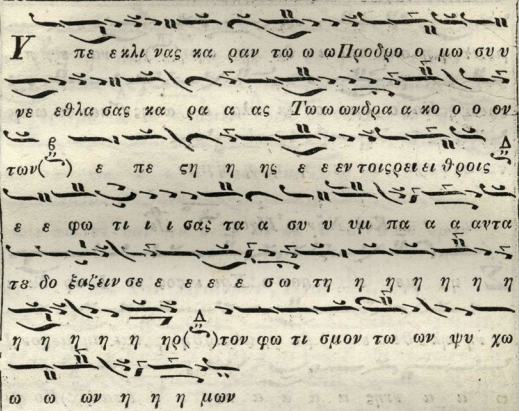 Υ πε ε κλι νας κα ραν τω ω ω Προδρο ο μω συ υ
νε εθλα σας κα ρα α ας Τω ω ωνδρα α κο ο ο ον
β Δ
των( ) ε πε ςη η ης ε ε εν τοιςρει ει θροις
ε ε φω τι ι ι σας τα α συ υ υμ πα α α αντα
τε δο ξαζειν σε ε ε ε ε σω τη η η η η η η
Δ
η η η η η ηρ( )τον φω τι σμον τω ων ψυ χω
ω ω ων η η η μων